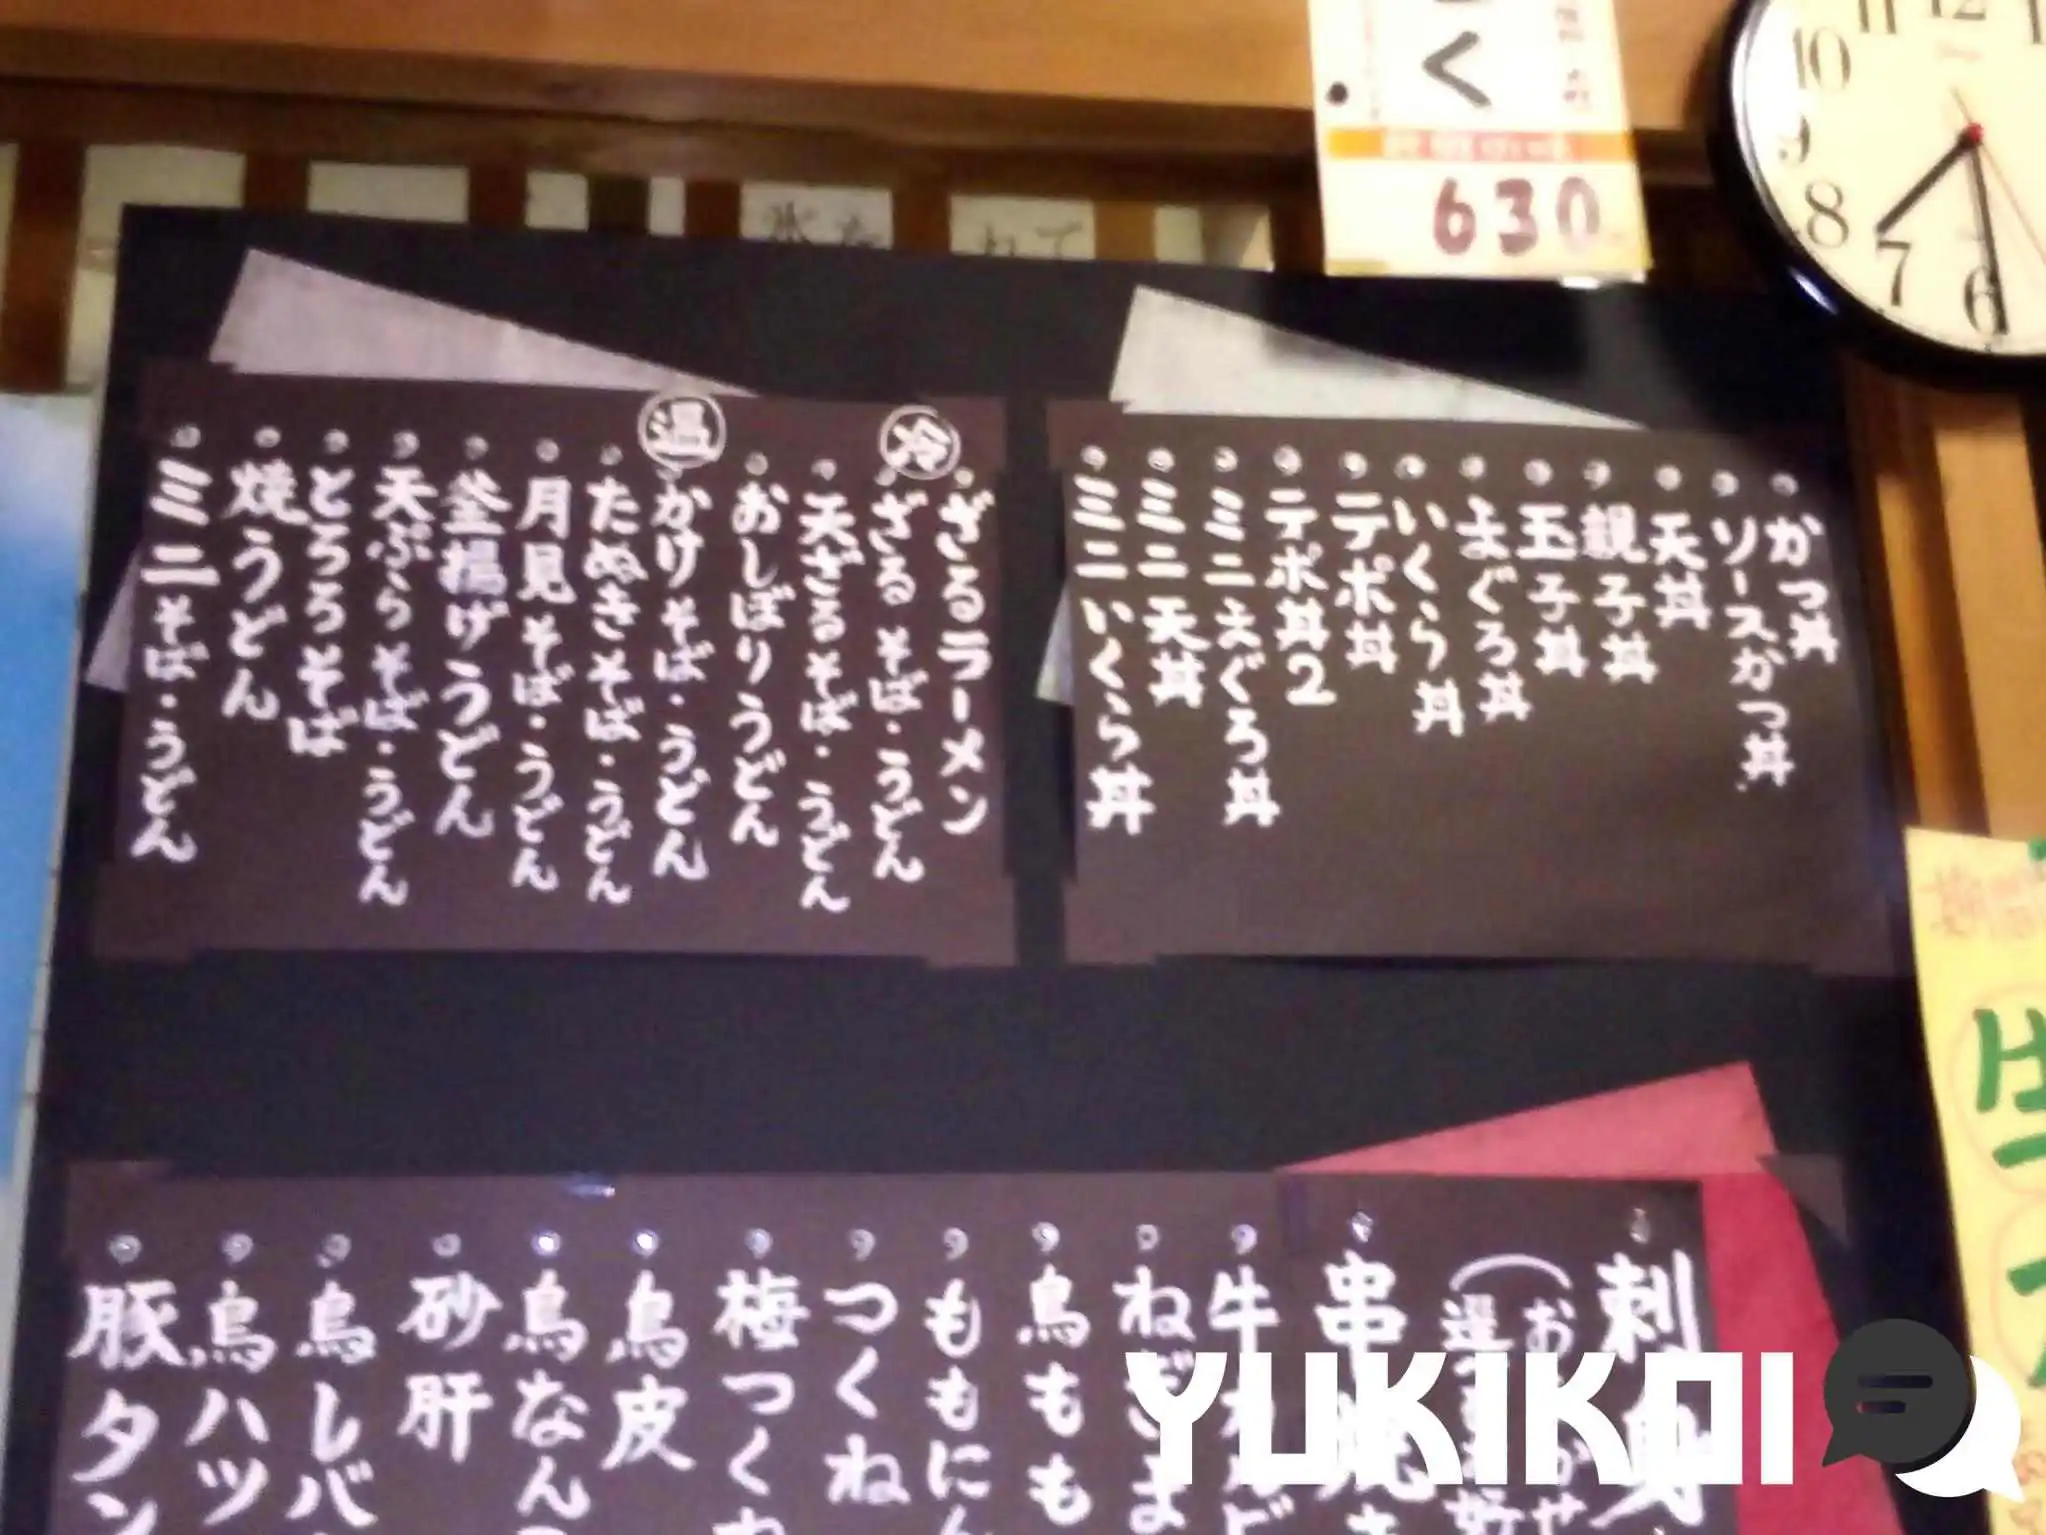 く
630
10
9
8
7
6
冷
ざるラーメン
ざるそば・うどん
天ざるそば・うどん
おしぼりうどん
温
かけそば・うどん
たぬきそば・うどん
月見そば・うどん
釜揚げうどん
天ぷらそば・うどん
とろろそば
焼うどん
ミニそば・うどん
かつ丼
ソースかつ丼
天丼
親子丼
玉子丼
まぐろ丼
いくら丼
テポ丼
テポ丼2
ミニまぐろ丼
ミニ天丼
ミニいくら丼
刺身
串
牛
ねぎま
鳥もも
ももにん
つくね
梅つくね
鳥皮
鳥なん
砂肝
鳥レバ
鳥ハツ
豚タン
生
YUKIKOI